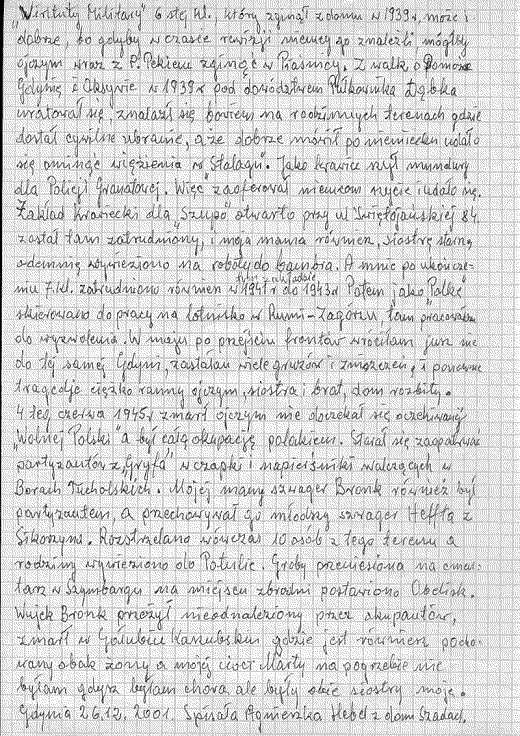 "Virtuty Military" 6 stej kl., który zginął z domu w 1939 r, może i
dobrze, bo gdyby w czasie rewizji niemcy go znaleźli mógłby
ojczym wraz z P. Pekiem zginąć w Piasnicy. Z walk, o Pomorze
Gdynię i Oksywie w 1939 r pod dowództwem Pułkownika Dąbka
uratował się, znalazł się bowiem na rodzinnych terenach gdzie
dostał cywilne ubranie, a że dobrze mówił po niemiecku udało
się ominąć więzienia w "Stalagu". Jako krawiec szył mundury
dla Policji Granatowej. Więc zaoferował niemcom szycie i udało się.
Zakład krawiecki dla "Szupo" otwarto przy ul Świętojańskiej 84.
został tam zatrudniony, i moja mama również, siostrę starszą
odemnie wywieziono na roboty do A mnie po ukończe-
niu 7 kl. zatrudniono również w tym zakładzie 1941 r do 1943 r Potem jako "Polkę"
skierowano do pracy na lotnisko w Rumi-Zagórzu tam pracowałam
do wyzwolenia. W maju po przejściu frontów wróciłam już nie
do tej samej Gdyni, zastałam wiele gruzów i zniszczeń, i ponowne
tragedje ciężko ranny ojczym, siostra i brat, dom rozbity.
4 teg czerwca 1945 r zmarł ojczym nie doczekał się oczekiwanej
"Wolnej Polski" a był całą okupację polakiem. Starał się zaopatrywać
partyzantów z "Gryfa" w czapki i napierśniki walczących w
Borach Tucholskich. Mojej mamy szwagier Bronk również był
partyzantem, a przechowywał go młodszy szwagier Heffta z
Sikorzyna. Rozstrzelano wówczas 10 osób z tego terenu a
rodziny wywieziono do Potulic. Groby przeniesiono na cmen-
tarz w Szymbarku na miejscu zbrodni postawiono Obelisk.
Wujek Bronk przeżył nieodnaleziony przez okupantów,
zmarł w Gołubiu Kaszubskim gdzie jest również pocho-
wany obok żony a mojej cioci Marty na pogrzebie nie
byłam gdyż byłam chora ale były obie siostry moje.
Gdynia 26.12.2001. Spisała Agnieszka Hebel z domu Szadach.